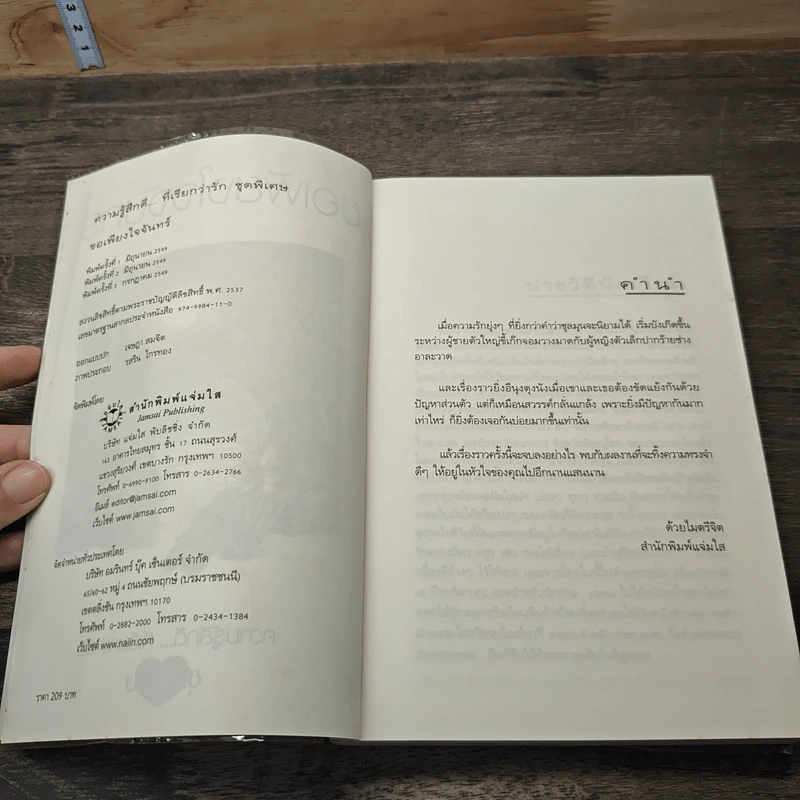 3 2 1
ความรู้สึกดี... ที่เรียกว่ารัก ชุดพิเศษ
ขอเพียงใจจันทร์
พิมพ์ครั้งที่ 1 มิถุนายน 2549
พิมพ์ครั้งที่ 2 มิถุนายน 2549
พิมพ์ครั้งที่ 3 กรกฎาคม 2549
สงวนลิขสิทธิ์ตามพระราชบัญญัติลิขสิทธิ์ พ.ศ. 2537
เลขมาตรฐานสากลประจำหนังสือ 974-9984-11-0
ออกแบบปก เจษฎา สมจิต
ภาพประกอบ รสริน ไกรทอง
จัดพิมพ์โดย
สำนักพิมพ์แจ่มใส
Jamsai Publishing
บริษัท แจ่มใส พับลิชชิ่ง จำกัด
163 อาคารไทยสมุทร ชั้น 17 ถนนสุรวงศ์
แขวงสุริยวงศ์ เขตบางรัก กรุงเทพฯ 10500
โทรศัพท์ 0-6990-9100 โทรสาร 0-2634-2766
อีเมล์ editor@jamsai.com
เว็บไซต์ www.jamsai.com
จัดจำหน่ายทั่วประเทศโดย
บริษัท อมรินทร์ บุ๊ค เซ็นเตอร์ จำกัด
65/60-62 หมู่ 4 ถนนชัยพฤกษ์ (บรมราชชนนี)
เขตตลิ่งชัน กรุงเทพฯ 10170
โทรศัพท์ 0-2882-2000 โทรสาร 0-2434-1384
เว็บไซต์ www.naiin.com
ราคา 209 บาท
คำนำ
เมื่อความรักยุ่งๆ ที่ยิ่งกว่าคำว่าชุลมุนจะนิยามได้ เริ่มบังเกิดขึ้น
ระหว่างผู้ชายตัวใหญ่ขี้เก๊กจอมวางมาดกับผู้หญิงตัวเล็กปากร้ายช่าง
อาละวาด
และเรื่องราวยิ่งอีนุงตุงนังเมื่อเขาและเธอต้องขัดแย้งกันด้วย
ปัญหาส่วนตัว แต่ก็เหมือนสวรรค์กลั่นแกล้ง เพราะยิ่งมีปัญหากันมาก
เท่าไหร่ ก็ยิ่งต้องเจอกันบ่อยมากขึ้นเท่านั้น
แล้วเรื่องราวครั้งนี้จะจบลงอย่างไร พบกับผลงานที่จะทิ้งความทรงจำ
ดีๆ ให้อยู่ในหัวใจของคุณไปอีกนานแสนนาน
ด้วยไมตรีจิต
สำนักพิมพ์แจ่มใส